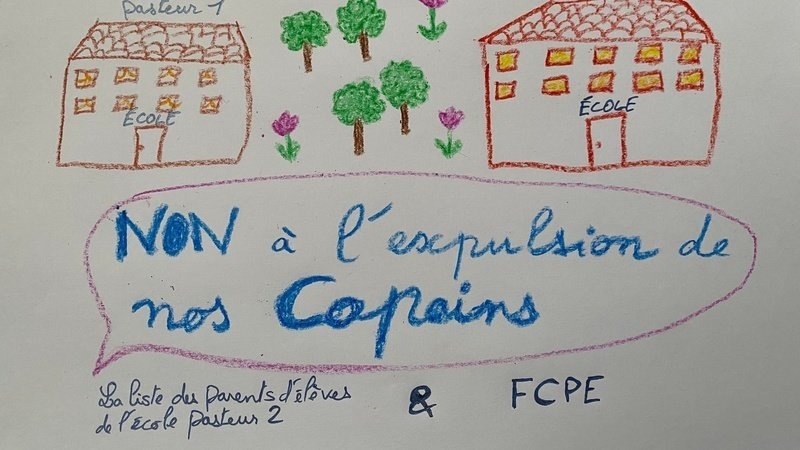 Pasteur 1
ÉCOLE
ÉCOLE
NON à l'expulsion de
nos Copains
La liste des parents d'élèves
de l'école Pasteur 2
& FCPE